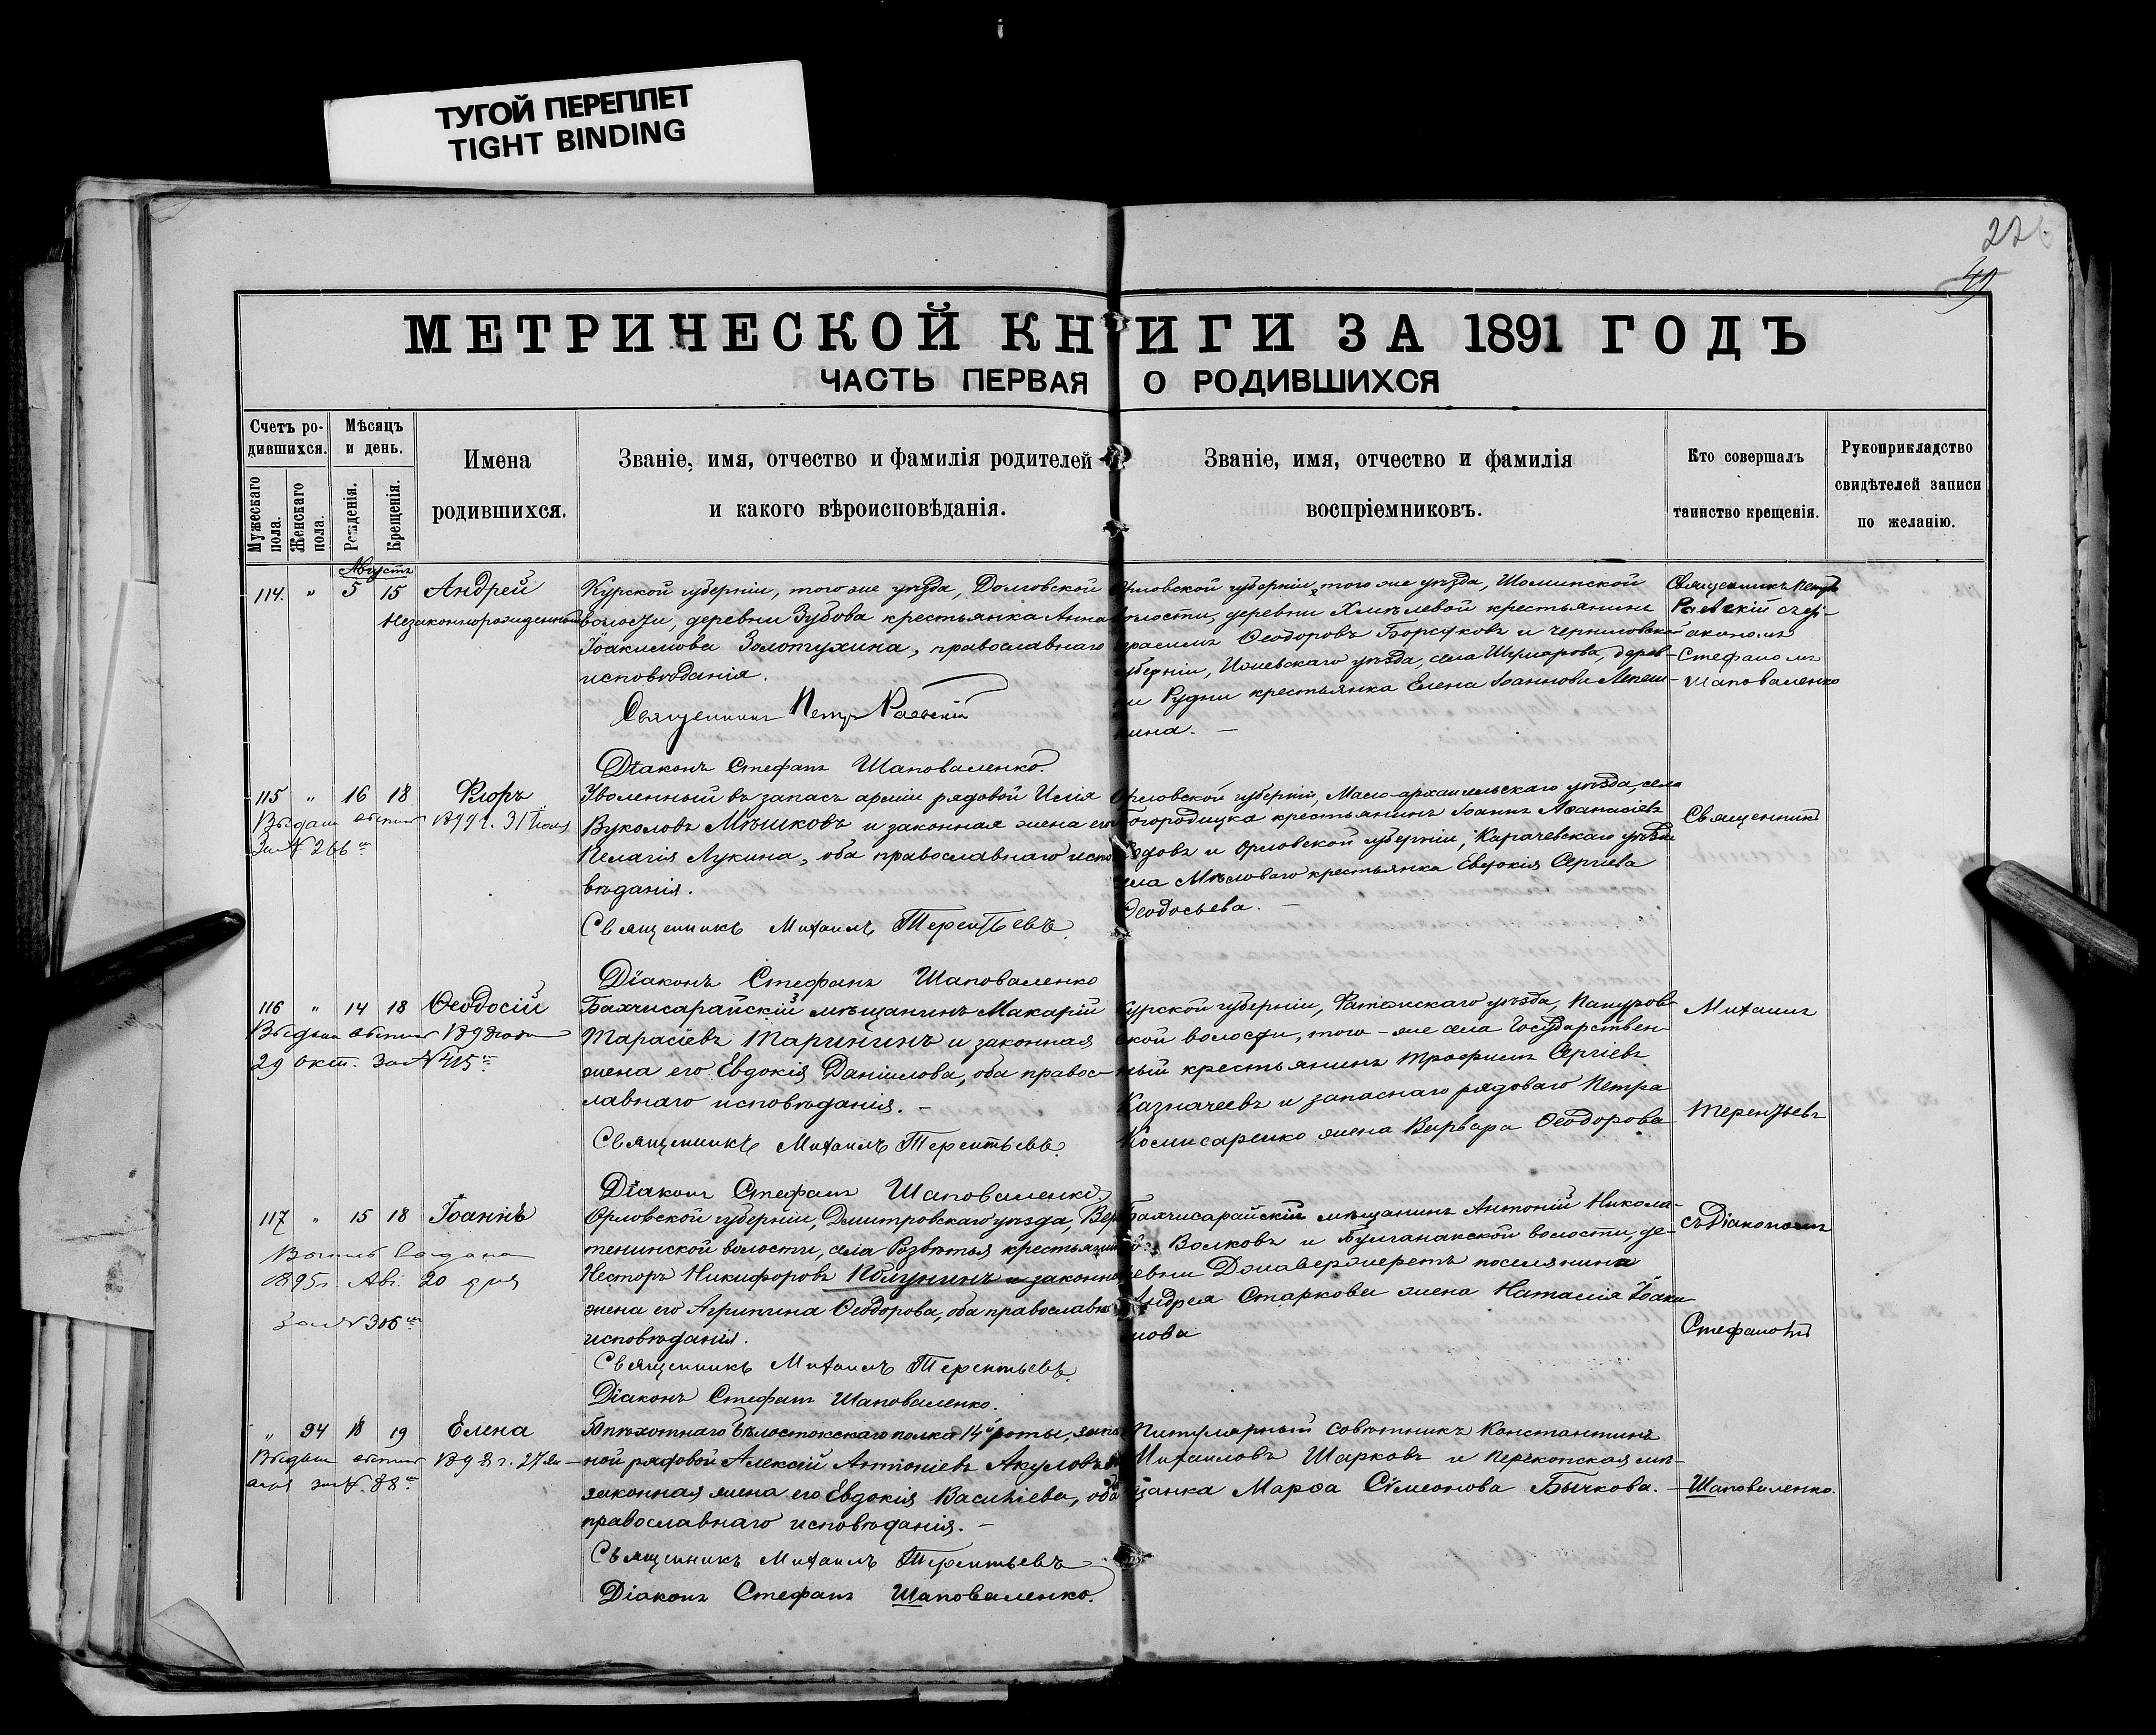 ТУГОЙ ПЕРЕПЛЕТ
TIGHT BINDING
226
49
МЕТРИЧЕСКОЙ КНИГИ ЗА 1891 ГОДЪ
ЧАСТЬ ПЕРВАЯ О РОДИВШИХСЯ
Счетъ ро-
дившихся.
Мужескаго пола.
Женскаго пола.
Мѣсяцъ
и день.
Рожденія.
Крещенія.
Имена
родившихся.
Званіе, имя, отчество и фамилія родителей
и какого вѣроисповѣданія.
Званіе, имя, отчество и фамилія
воспріемниковъ.
Кто совершалъ
таинство крещенія.
Рукоприкладство
свидѣтелей записи
по желанію.
Августъ
114. " 5 15 Андрей
Незаконнорожденный
Курской губерніи, того же уѣзда, Долговской
волости, деревни Зубова крестьянка Анна
Іоакимова Золотухина, православнаго
исповѣданія.
Священникъ Петръ Раевскій
Діаконъ Стефанъ Шаповаленко.
Орловской губерніи, того же уѣзда,
волости, деревни Хмѣлевой крестьянинъ
Герасимъ Ѳеодоровъ и Черниговской
губерніи, уѣзда, села дерев-
ни Рудни крестьянка Елена Іоаннова
кина. —
Священникъ Петръ
Раевскій съ ді-
акономъ
Стефаномъ
Шаповаленко
115 " 16 18 Флоръ
Выдана 1899 г. 31 Іюля
За № 266
Уволенный въ запасъ арміи рядовой Илія
Вуколовъ Мѣшковъ и законная жена его
Пелагія Лукина, оба православнаго испо
вѣданія.
Священникъ Михаилъ Терентьевъ.
Діаконъ Стефанъ Шаповаленко
Орловской губерніи, Мало-архангельскаго уѣзда, села
Богородицка крестьянинъ Іоаннъ Аѳанасіевъ
и Орловской губерніи, Карачевскаго уѣзда
села Мѣловаго крестьянка Евдокія Сергіева
Ѳеодосьева. —
Священникъ
116 " 14 18 Ѳеодосій
Выдана
29 окт. За № 415
Бахчисарайскій мѣщанинъ Макарій
Тарасіевъ Марининъ и законная
жена его Евдокія Даніилова, оба правос-
лавнаго исповѣданія. —
Священникъ Михаилъ Терентьевъ.
Діаконъ Стефанъ Шаповаленко.
Курской губерніи, Фатежскаго уѣзда,
ской волости, того-же села Государствен-
ный крестьянинъ Трофимъ Сергіевъ
Казначеевъ и запаснаго рядоваго Петра
Комисаренко жена Варвара Ѳеодорова
Михаилъ
Терентьевъ
117 " 15 18 Іоаннъ
1895 г. Авг. 20 дня
За № 306
Орловской губерніи, Дмитровскаго уѣзда, Вер
тенинской волости, села Розвѣтья крестьянинъ
Несторъ Никифоровъ Полунинъ и законная
жена его Агрипина Ѳеодорова, оба православнаго
исповѣданія.
Священникъ Михаилъ Терентьевъ.
Діаконъ Стефанъ Шаповаленко.
Бахчисарайскій мѣщанинъ Антоній Никола-
евъ Волковъ и Булганакской волости, де-
ревни поселянина
Андрея Старкова жена Наталія Іоаки-
мова
съ Діакономъ
Стефаномъ
" 94 18 19 Елена
Выдана 1898 г. 27 Ян-
аря за № 88
пѣхотнаго Бѣлостокскаго полка 14й роты, запас
ной рядовой Алексій Антоніевъ Акуловъ и
законная жена его Евдокія Васильева, оба
православнаго исповѣданія. —
Священникъ Михаилъ Терентьевъ
Діаконъ Стефанъ Шаповаленко.
Титулярный совѣтникъ Константинъ
Михаиловъ Шарковъ и Перекопская мѣ-
щанка Марѳа Сѵмеонова Бычкова. —
Шаповаленко.